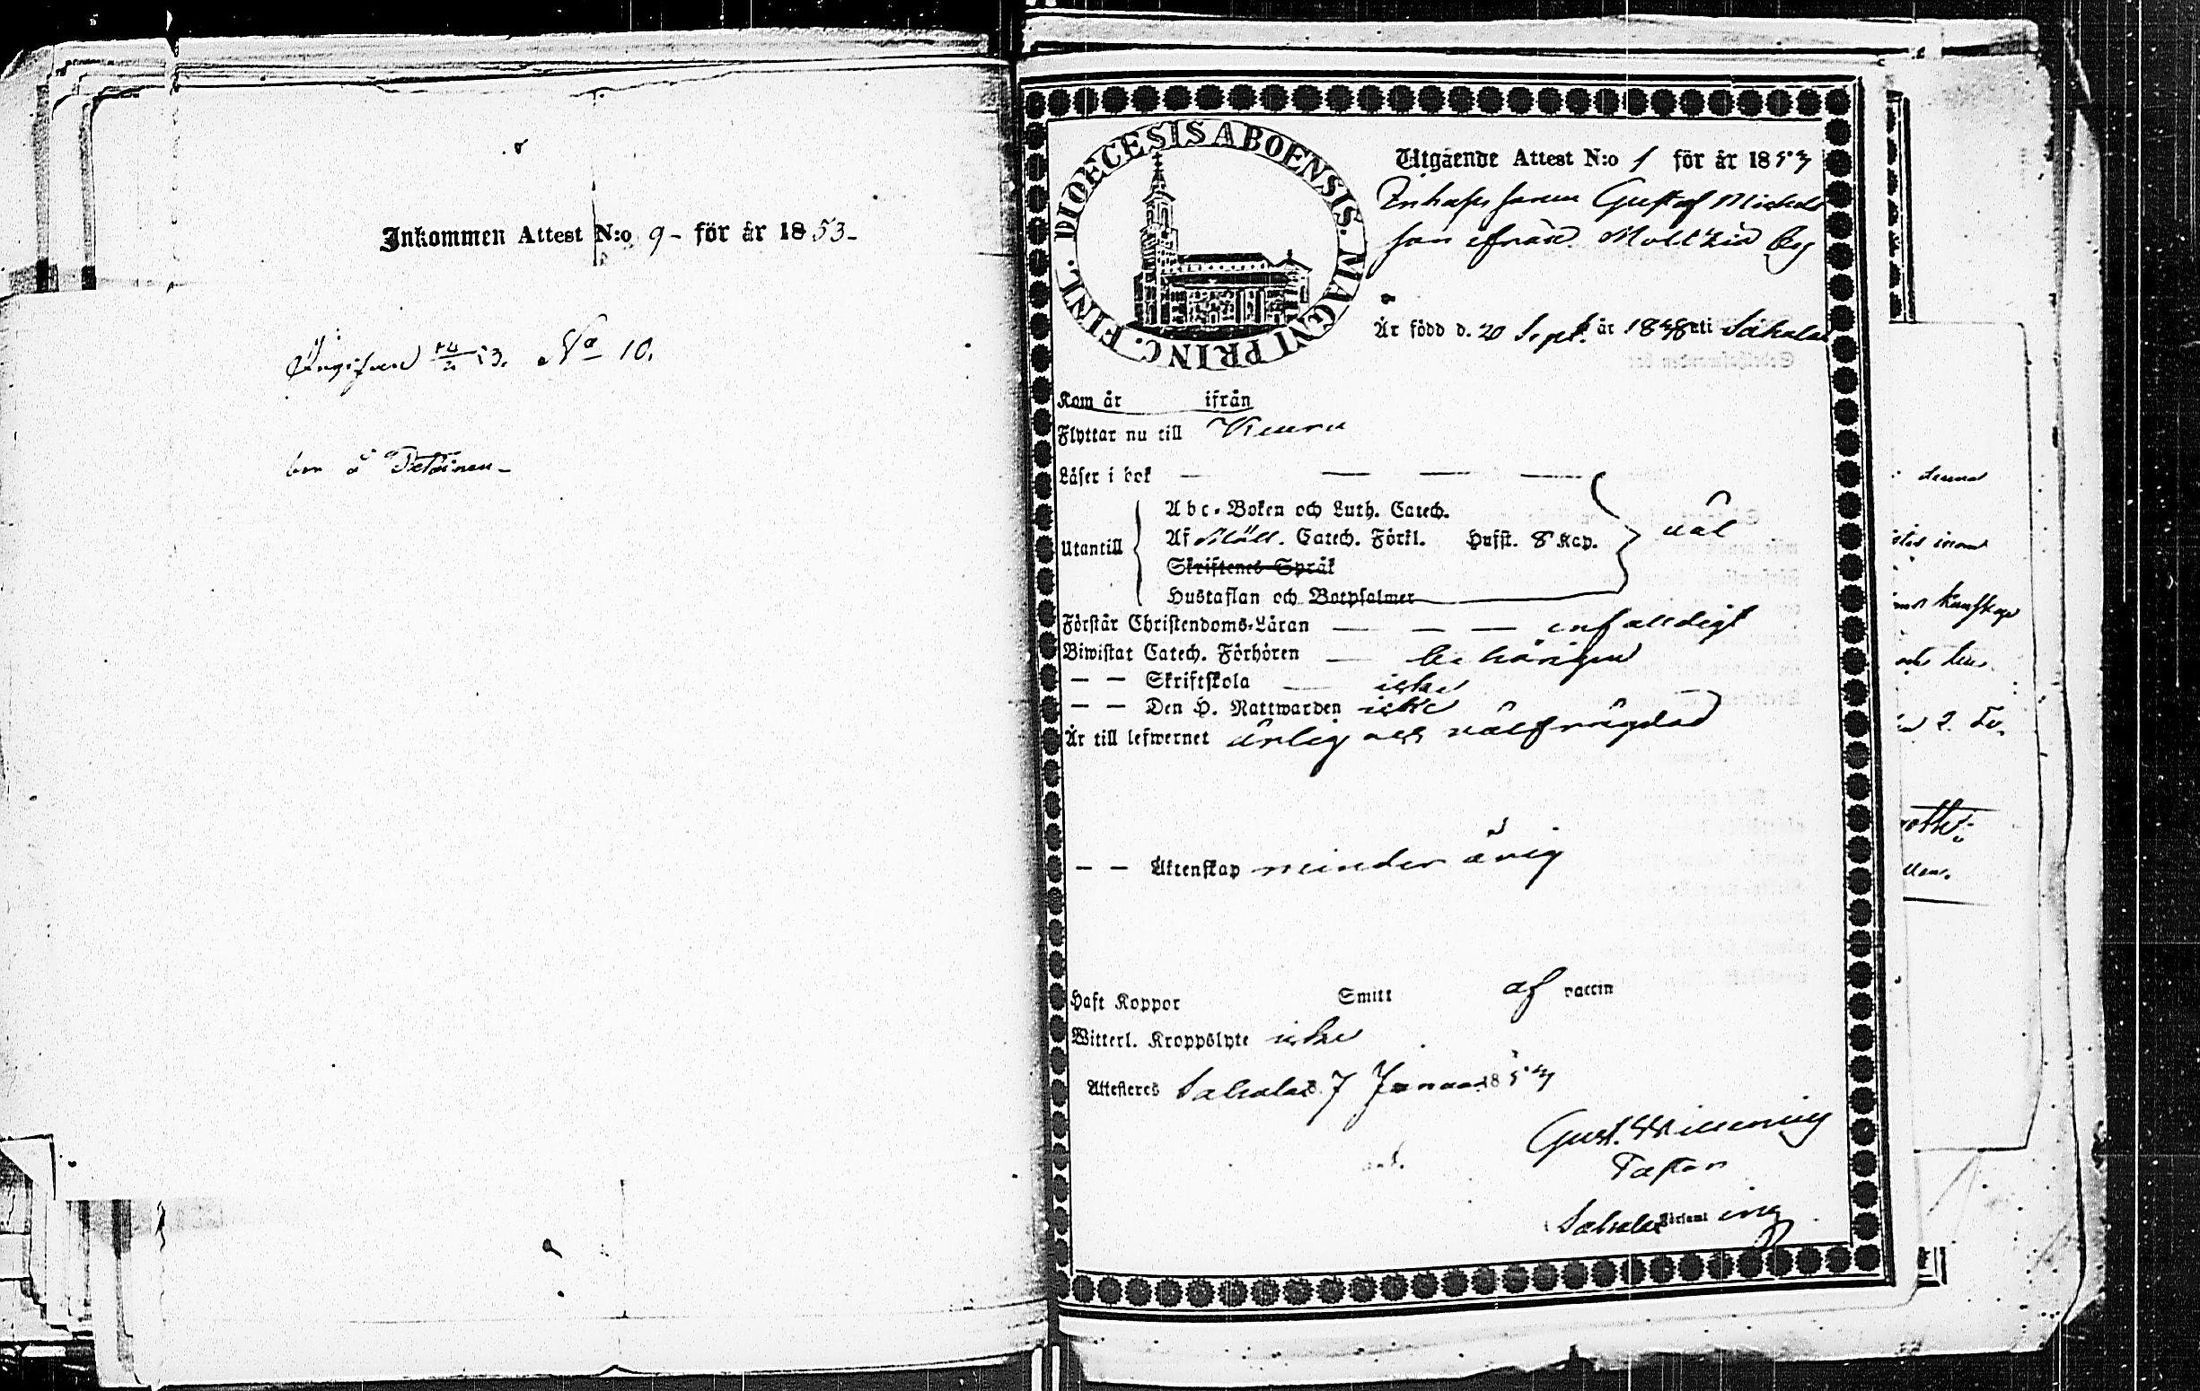 Inkommen Attest N:o 9 - för år 1853 -
Angifven 12/2 53. No 10.
bor å Petäinen -
DIOECESIS ABOENSIS. MAGNI PRINC. FINL.
Utgående Attest N:o 1 för år 1853
Inhyses sonen Gustaf Michels
son ifrån By
Är född d. 20 Sept. år 1838 uti Sahalax
Kom år ifrån
Flyttar nu till Keuru
Läser i bok — — — —
Abc-Boken och Luth. Catech.
Utantill Af Möll. Catech. Förkl. Husst. 8 Kap. väl
Skriftenes Språk
Hustaflan och Botpsalmer
Förstår Christendoms-Läran — — — enfalldigt
Biwistat Catech. Förhören — behörigen
— — Skriftskola — icke
— — Den H. Nattwarden icke
Är till lefwernet ärlig och välfrägdad
— — Äktenskap minder årig
Haft Koppor Smitt af vaccin
Witterl. Kroppslyte icke
Attesteras Sahalax d. 7 Januar 1853
Gust. Willening
Pastor
Sahalax Församl ing
denna
kunskap
2.